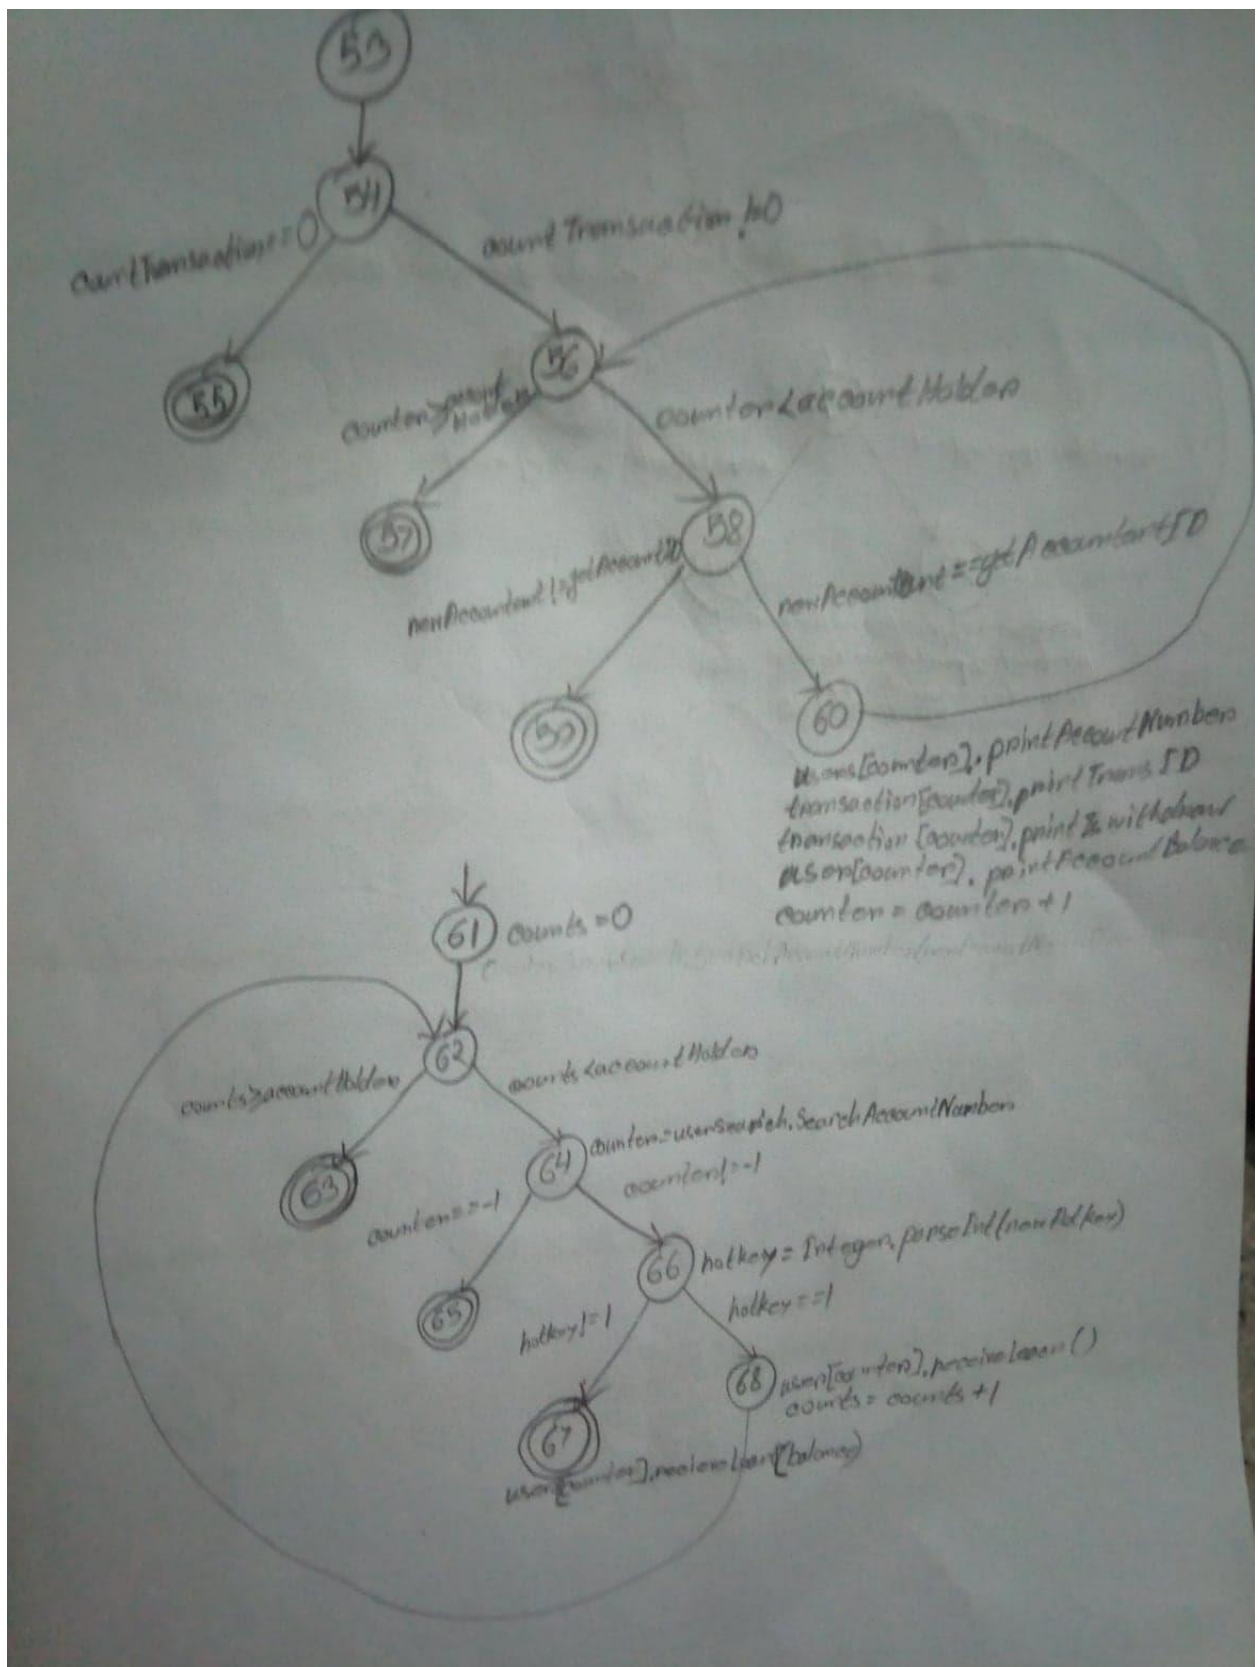 53
54
countTransaction==0
countTransaction!=0
55
56
counter>=account
Holder
counter<accountHolder
57
58
newAccountant!=getAccountID
newAccountant==getAccountantID
59
60
users[counter].printAccountNumber
transaction[counter].printTransID
transaction[counter].print withdraw
user[counter].printAccountBalance
counter = counter+1
61 counts=0
62
counts>=accountHolder
counts<accountHolder
63
64 counter=userSearch.SearchAccountNumber
counter==-1
counter!=-1
65
66 hotkey=Integer.parseInt(newHotkey)
hotkey!=1
hotkey==1
67
user[counter].receiveLoan(balance)
68 user[counter].receiveLoan()
counts=counts+1